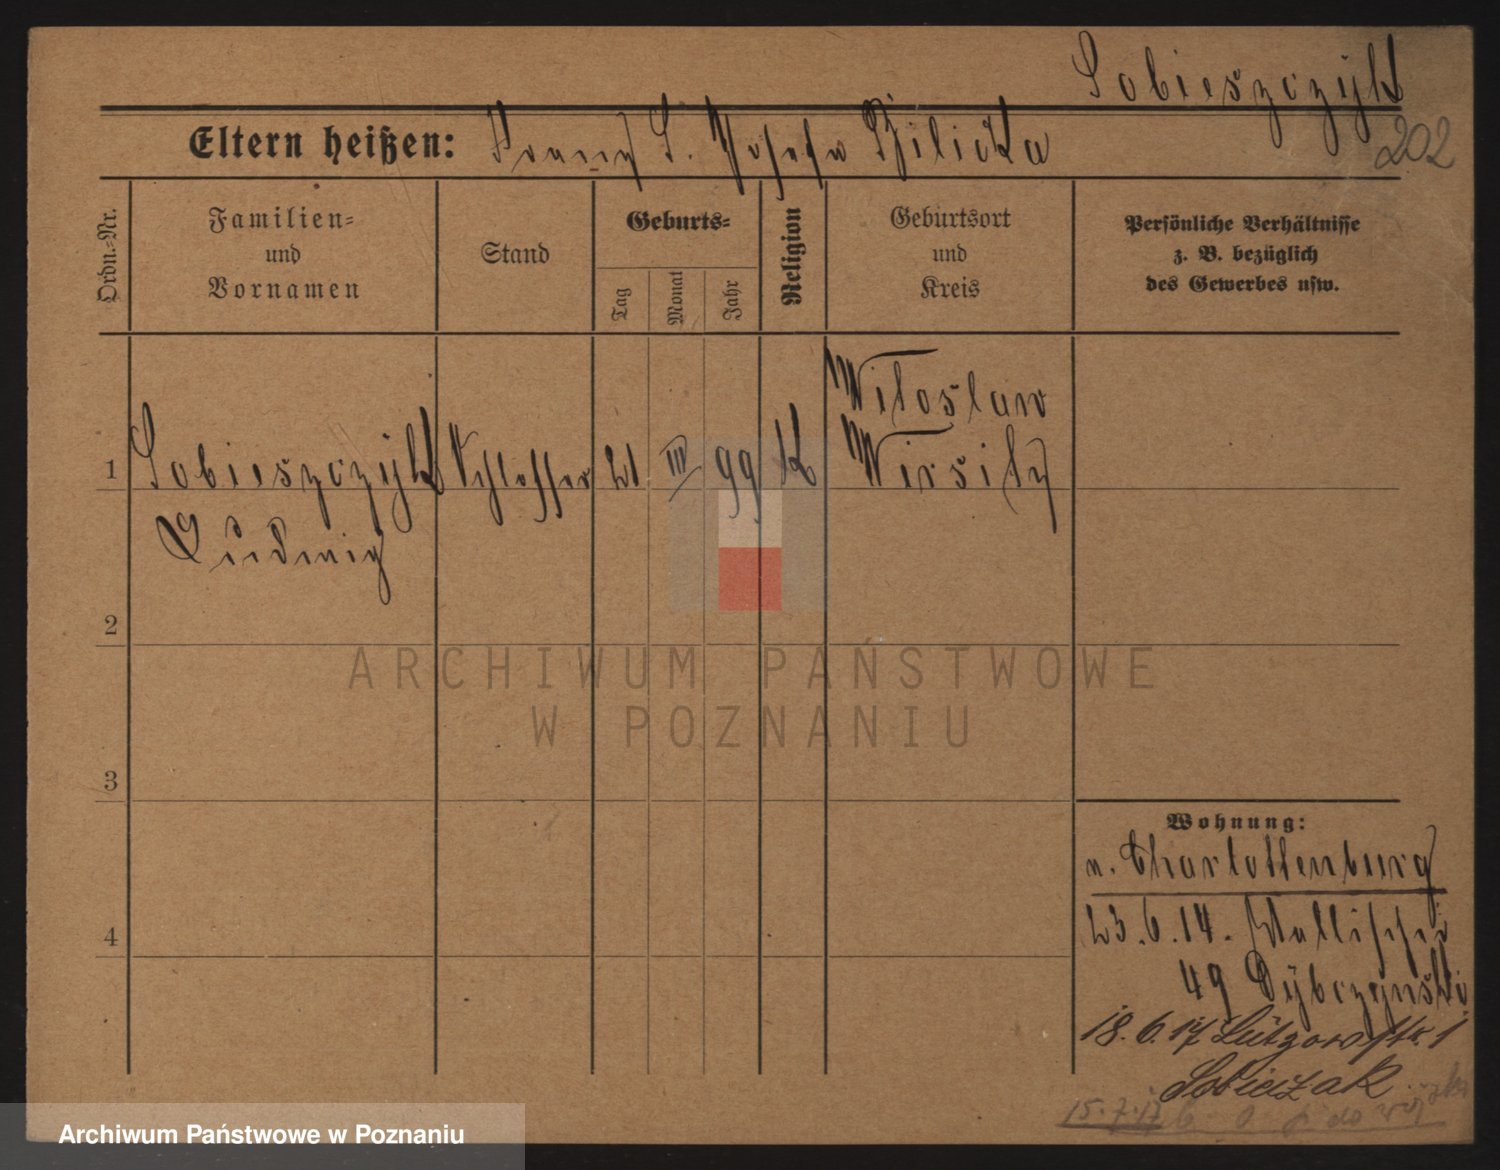 Sobieszczyk
202
Eltern heißen: Franz S. Josefa Bilicka
Ordn.-Nr.
Familien-
und
Vornamen
Stand
Geburts-
Tag
Monat
Jahr
Religion
Geburtsort
und
Kreis
Persönliche Verhältnisse
z. B. bezüglich
des Gewerbes usw.
1
Sobieszczyk
Ludwig
Schlosser
21
III
99
K
Miloslaw
Wirsitz
2
3
4
Wohnung:
n. Charlottenburg
23.6.14. Wallischei
49 Dybczynski
18.6.17 Lützowstr. 1
Sobieszak
15.7.17 do
ARCHIWUM PAŃSTWOWE
W POZNANIU
Archiwum Państwowe w Poznaniu